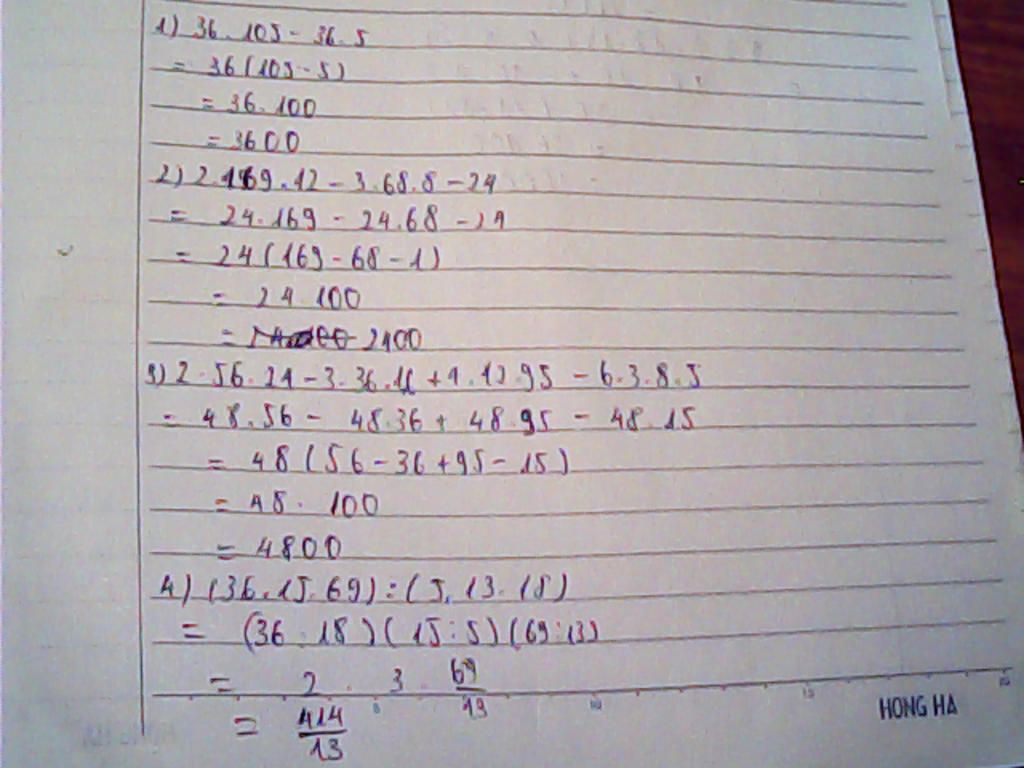 1) 36.105 - 36.5
= 36(105-5)
= 36.100
= 3600
2) 2.169.12 - 3.68.8 - 24
= 24.169 - 24.68 - 24
= 24(169-68-1)
= 24.100
= 2400
3) 2.56.24 - 3.36.16 + 4.12.95 - 6.3.8.5
= 48.56 - 48.36 + 48.95 - 48.15
= 48(56-36+95-15)
= 48. 100
= 4800
4) (36.15.69):(5.13.18)
= (36.18)(15:5)(69:13)
= 2 . 3 . 69/13
= 414/13
5 10 15 20
HONG HA